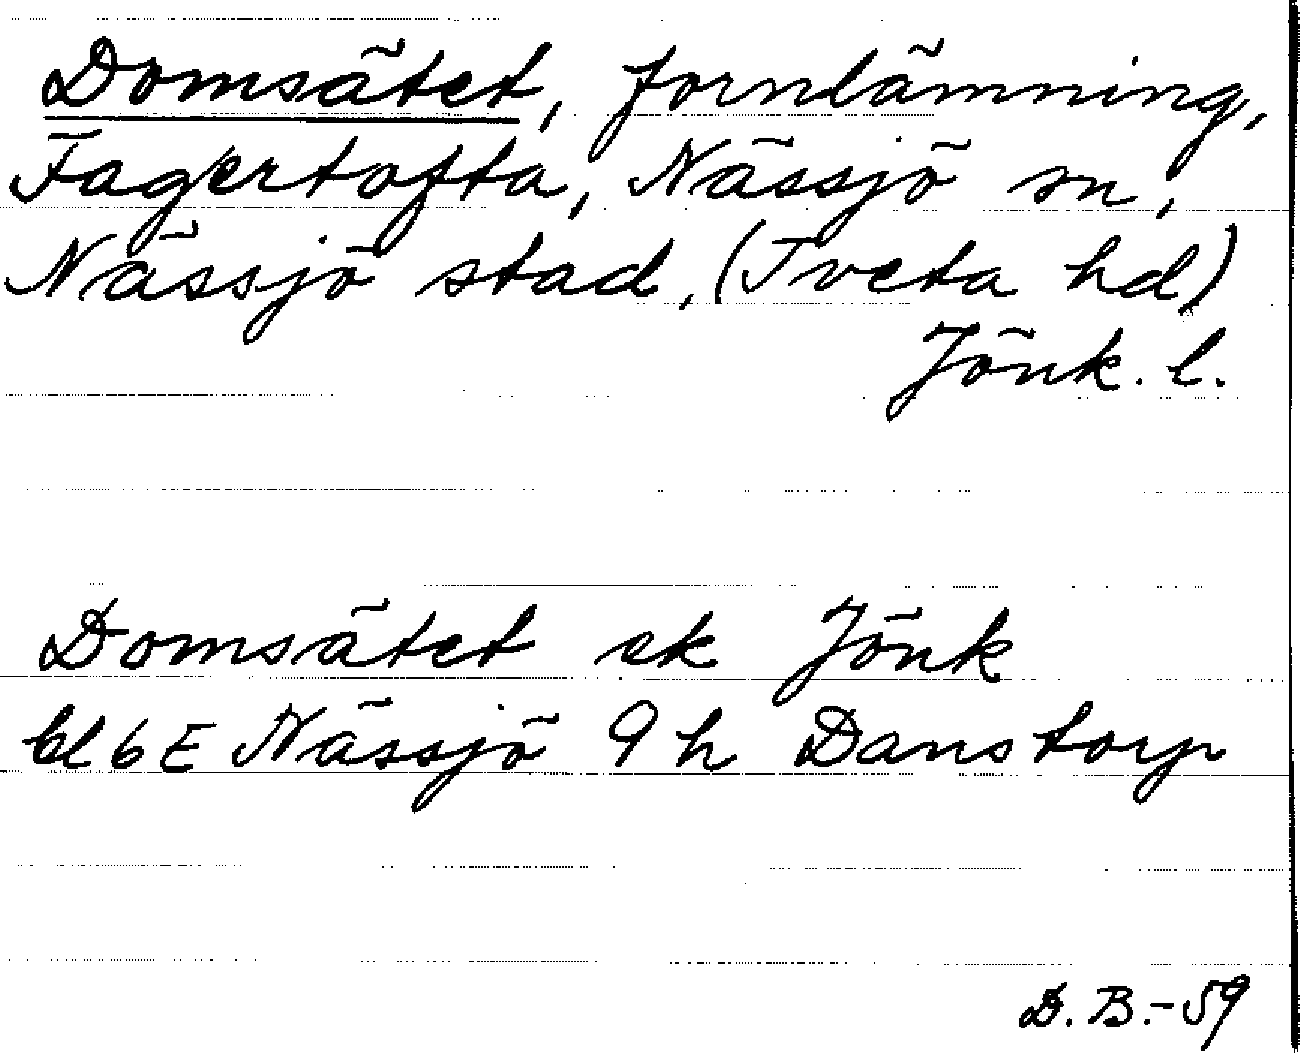 Domsätet, fornlämning,
Fagertofta, Nässjö sn,
Nässjö stad, (Tveta hd)
Jönk. l.
Domsätet ek Jönk
bl 6 E Nässjö 9 h Danstorp
D. B. - 59